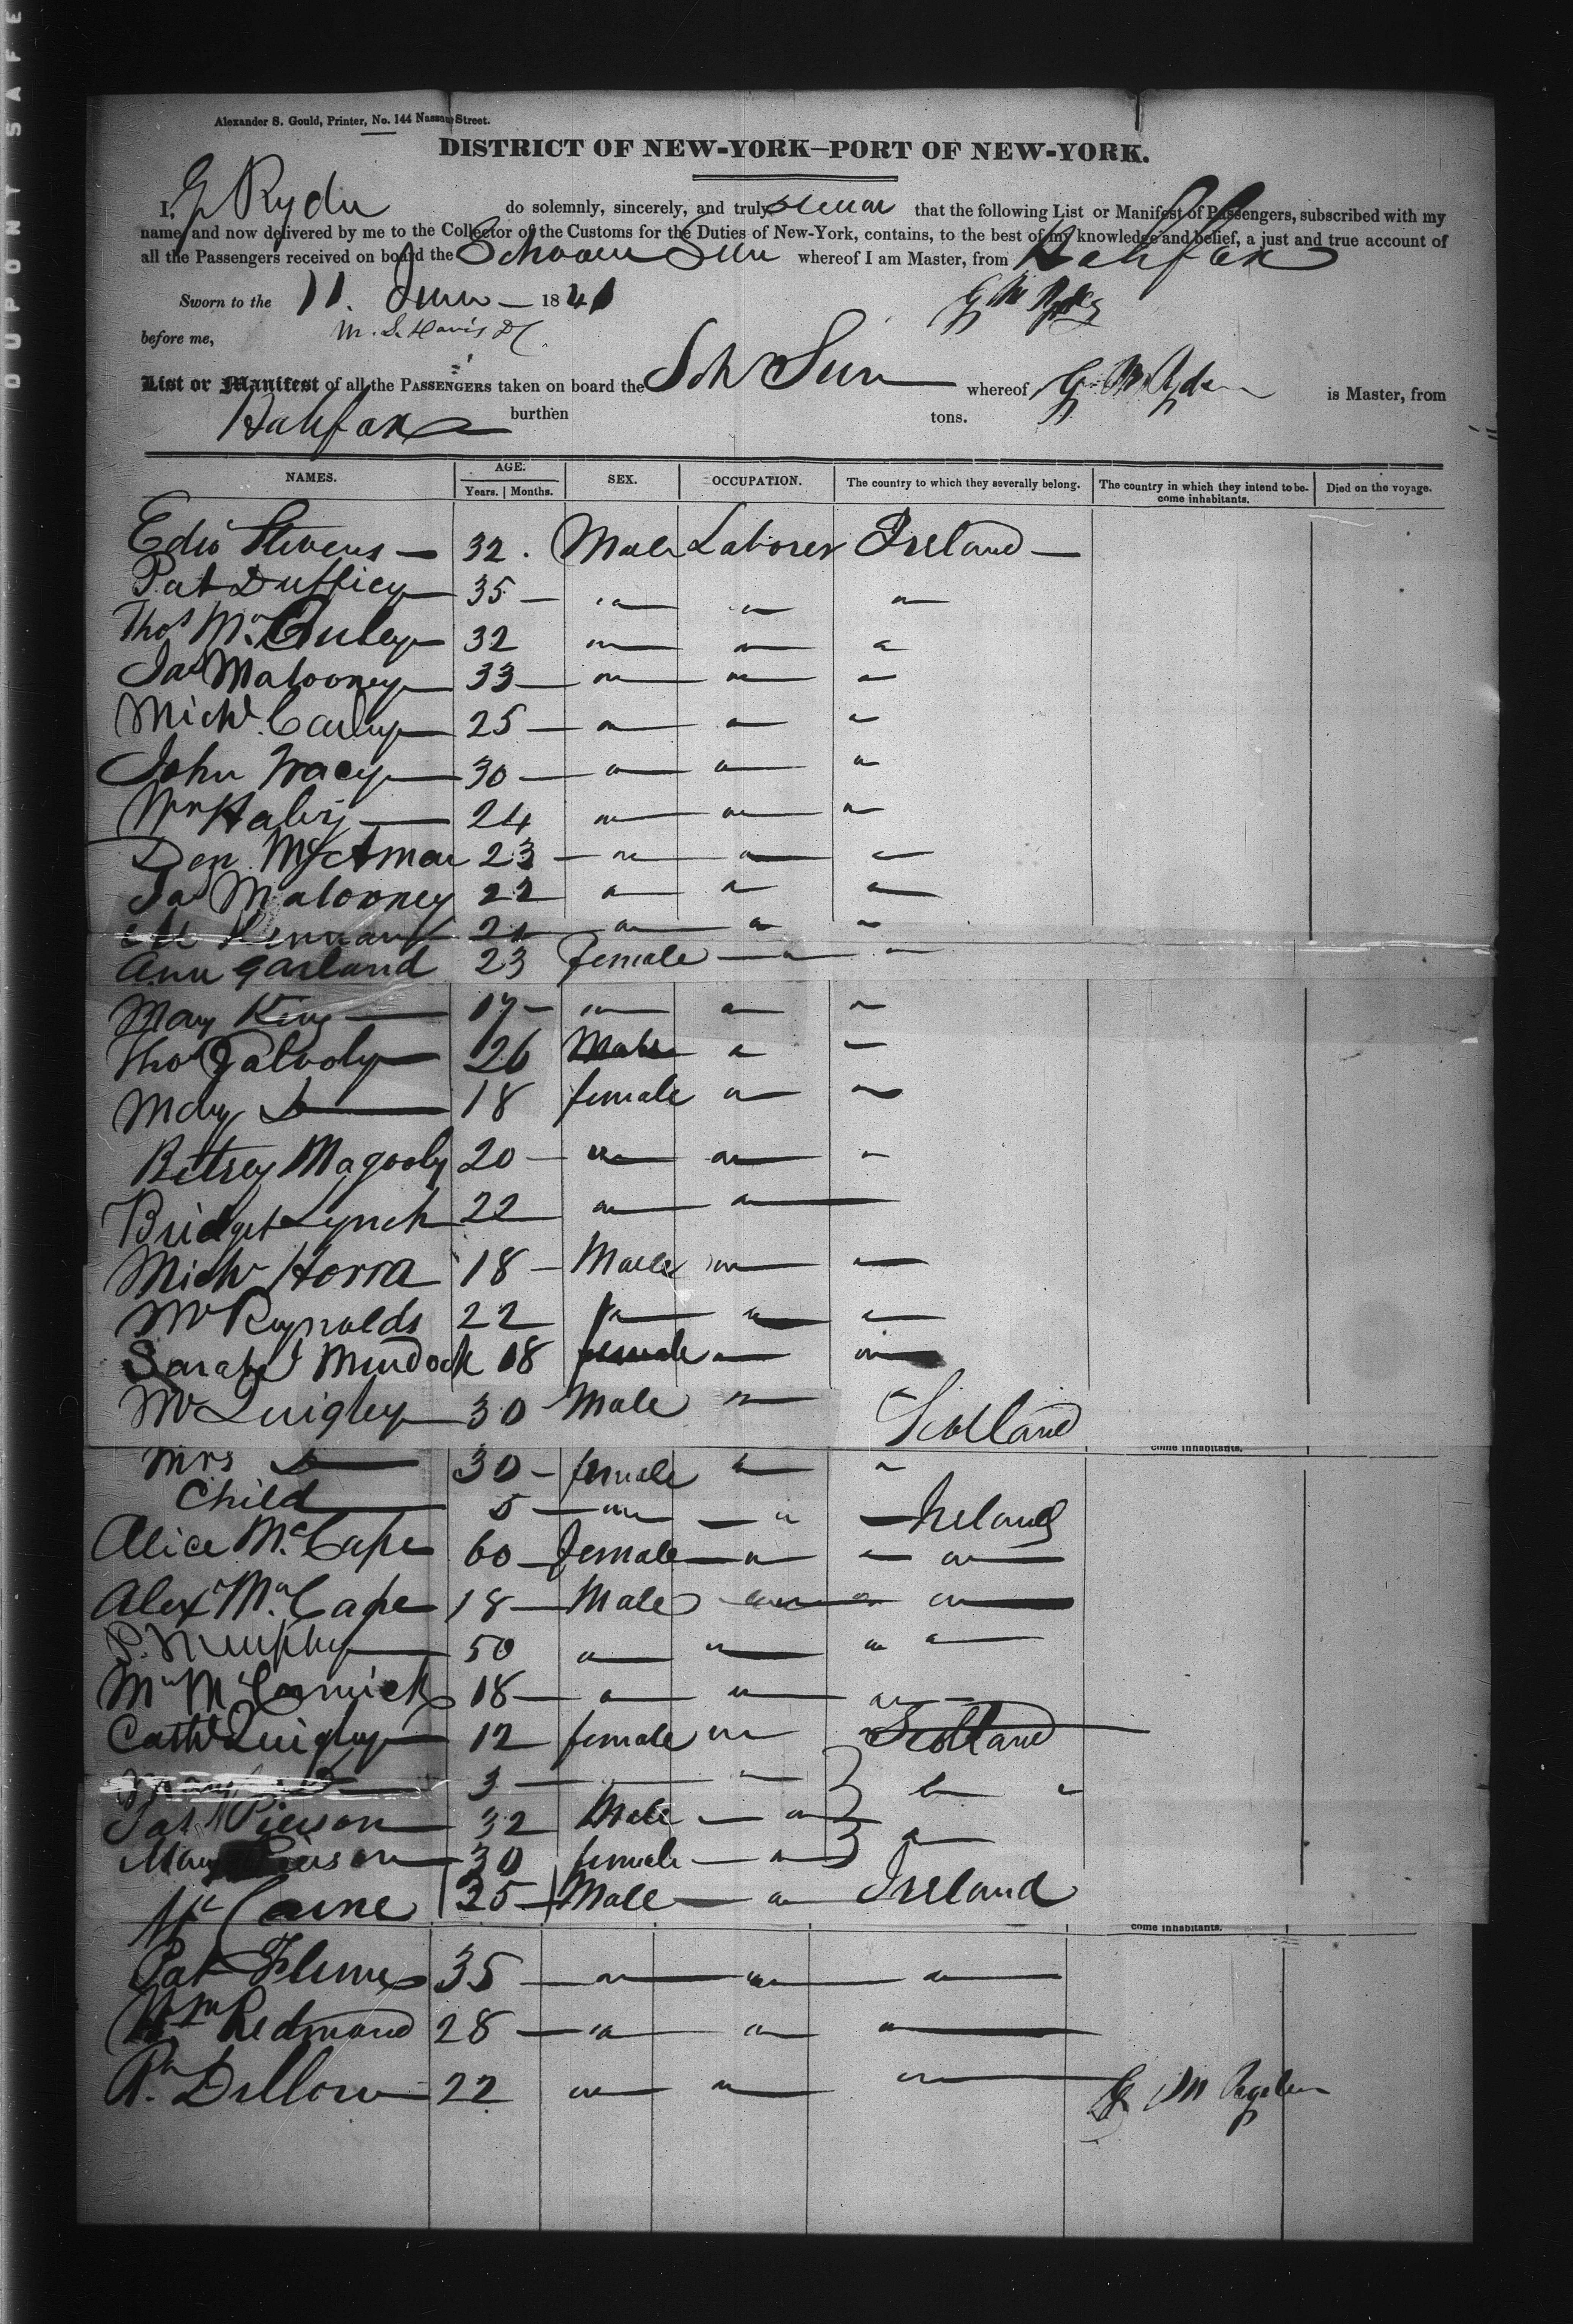 DUPONT SAFE
Alexander S. Gould, Printer, No. 144 Nassau Street.
DISTRICT OF NEW-YORK—PORT OF NEW-YORK.
I, G Ryder do solemnly, sincerely, and truly swear that the following List or Manifest of Passengers, subscribed with my
name, and now delivered by me to the Collector of the Customs for the Duties of New-York, contains, to the best of my knowledge and belief, a just and true account of
all the Passengers received on board the Schooner Sun whereof I am Master, from Halifax
Sworn to the 11. June 1841
before me,
List or Manifest of all the PASSENGERS taken on board the Sch Sun whereof G M Ryder is Master, from
Halifax burthen tons.
NAMES. AGE. SEX. OCCUPATION. The country to which they severally belong. The country in which they intend to be- Died on the voyage.
Years. | Months. come inhabitants.
Stevens 32. Male Laborer Ireland
Pat Dufficy 35 " " "
Thos 32 " " "
Jas Malooney 33 " " "
Michl 25 " " "
John Tracy 30 " " "
Wm 24 " " "
23 " " "
Jas Malooney 22 " " "
" " "
Ann Garland 23 female " "
Mary King 17 " " "
Thos 26 Male " "
Mary Do 18 female " "
Betsey Magooly 20 " " "
Bridget Lynch 22 " "
Michl Horra 18 Male " "
Reynolds 22 " " "
Sarah J Murdock 18 female " "
Quigley 30 Male " Scotland
come inhabitants.
Mrs Do 30 female " "
Child 5 " " Ireland
Alice McCape 60 female " " "
Alex McCape 18 Male " " "
P. Murphy 50 " " " "
McCormick 18 " " "
Cath Quigley 12 female " Scotland
Do 3 "
Pierson 32 Male "
Mary Pierson 30 female " "
Mc Carne 25 Male " Ireland
come inhabitants.
Pat 35 " " "
Wm Redmond 28 " " "
Dillon 22 " " " G M Ryder